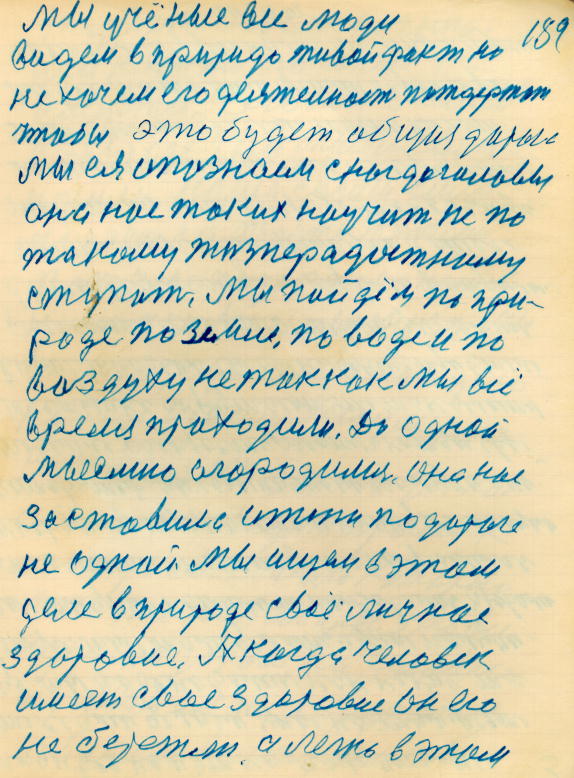 мы учёные все люди 189
видем в природо живой факт но
не хочем его деятелност потдержат
чтобы это будет общия дорога
мы ея опознаем с ног до головы
она нас таких научит не по
такому жизнерадостному
ступат. Мы пойдём по при-
роде по земле, по воде и по
воздуху не так как мы всё
время проходили. До одной
мысмио огородилис. она нас
заставила итти по дороге
не одной. Мы ищем в этом
деле в природе своё личное
здоровие. А когда человек
имеет свое здоровие он его
не бережет. а лезь в этом